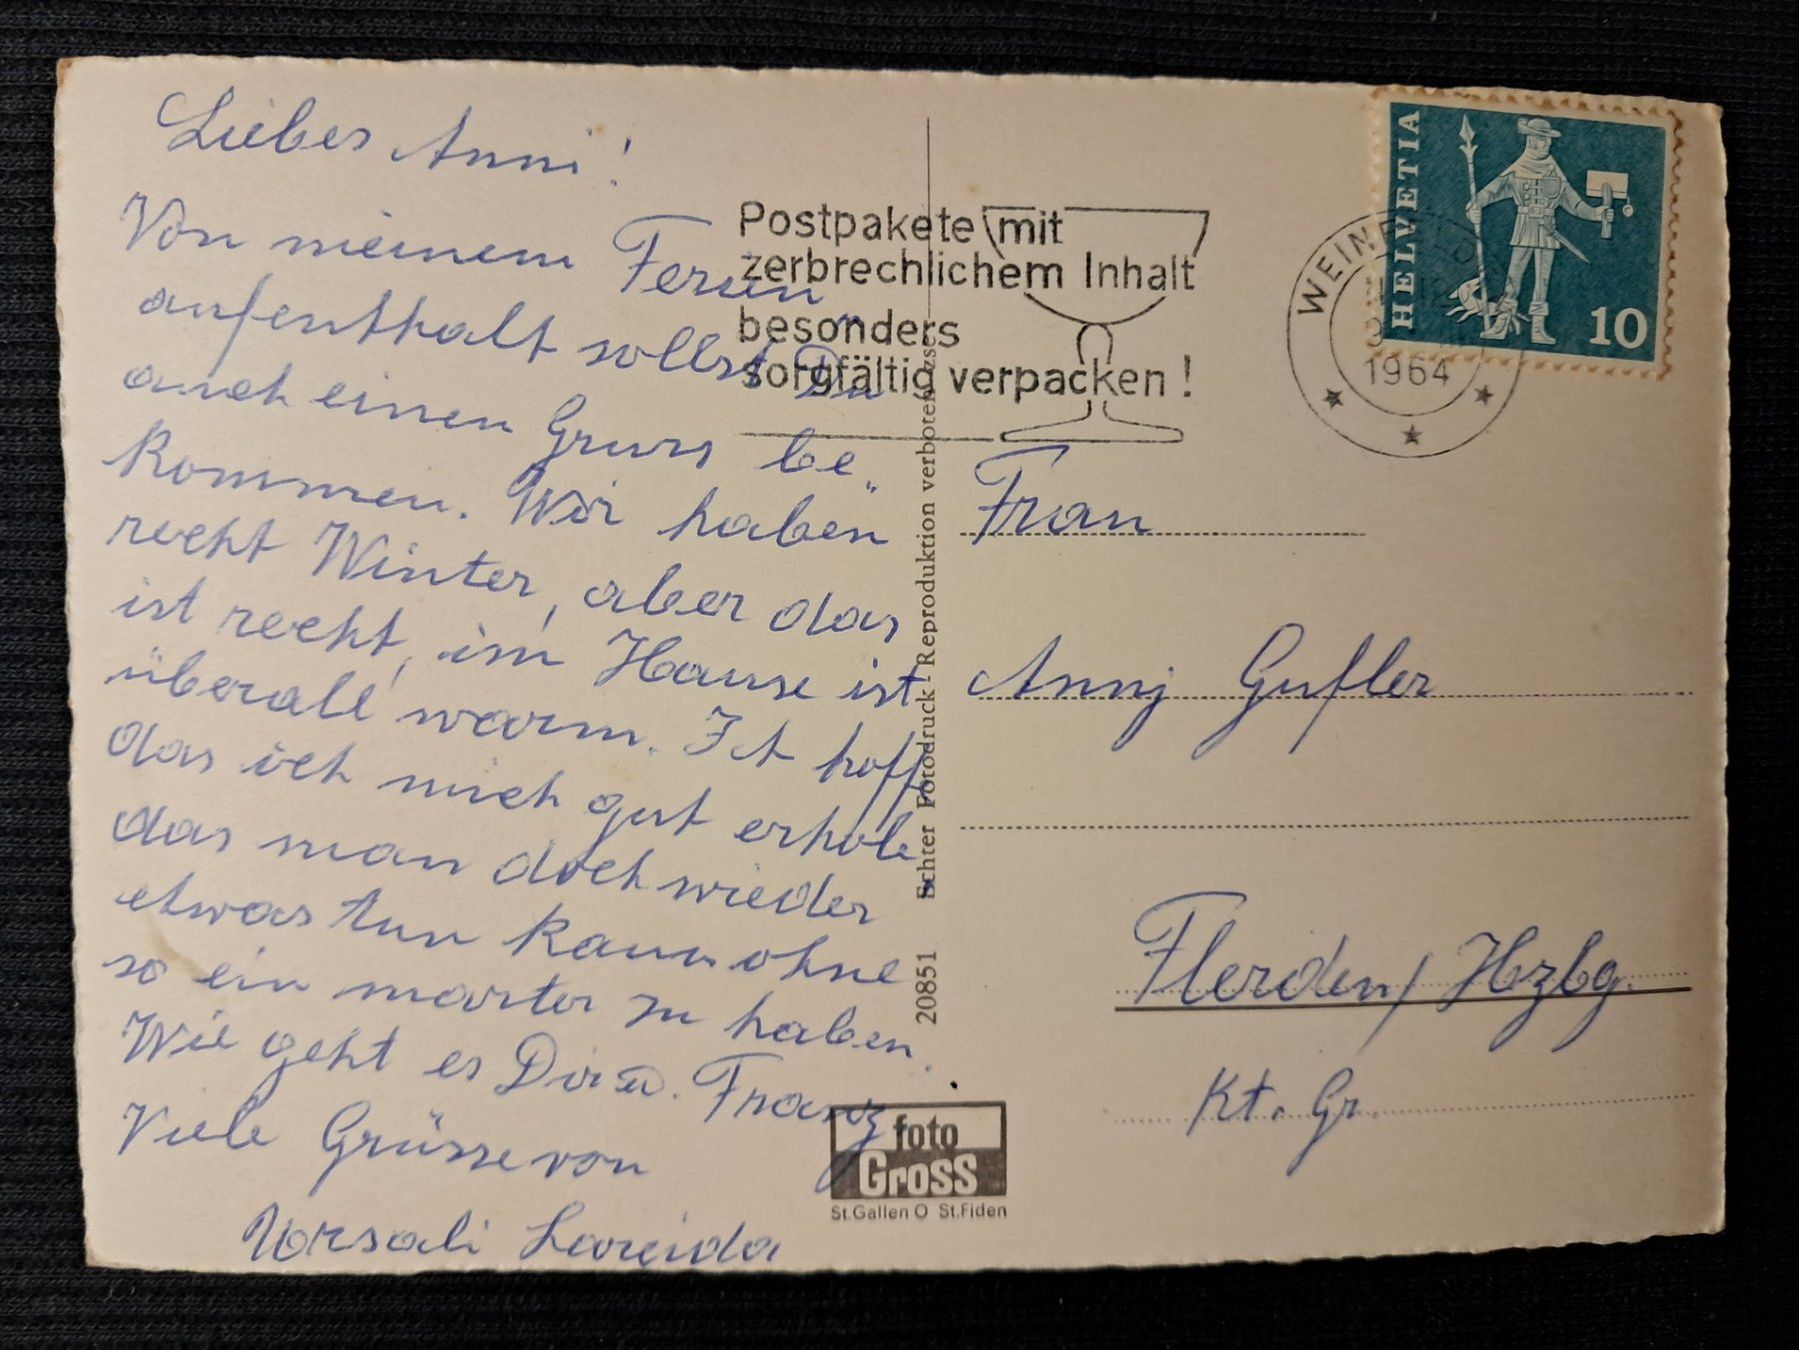 Liebes Anni!
Von meinem Ferien
aufenthalt sollst Du
auch einen Gruss be„
kommen. Wir haben
recht Winter, aber das
ist recht, im Hause ist
überall warm. Ich hoff
das ich mich gut erhole
das man doch wieder
etwas tun kann ohne
so ein marter zu haben.
Wie geht es Dir u. Franz
Viele Grüsse von
Ursali Lareida
Postpakete mit
zerbrechlichem Inhalt
besonders
sorgfältig verpacken!
20851 Echter Fotodruck - Reproduktion verboten
foto
Gross
St.Gallen O St.Fiden
HELVETIA
10
1964
Frau
Annj Gufler
Flerden/Hzbg.
Kt. Gr.